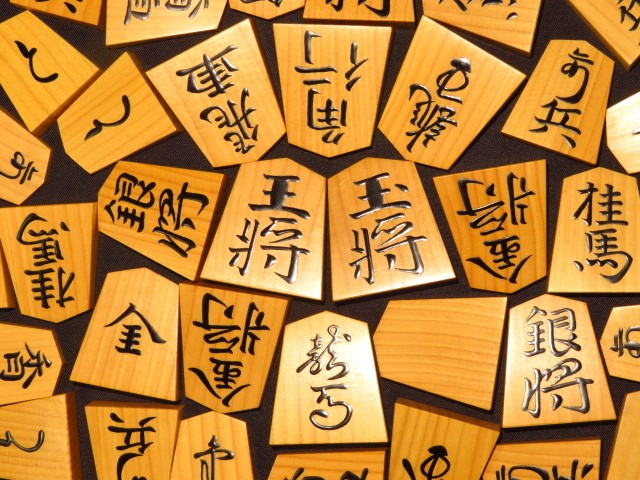 飛車
角行
龍王
歩兵
銀将
王将
玉将
金将
桂馬
桂馬
と
と
金
金将
龍馬
銀将
香
歩
兵